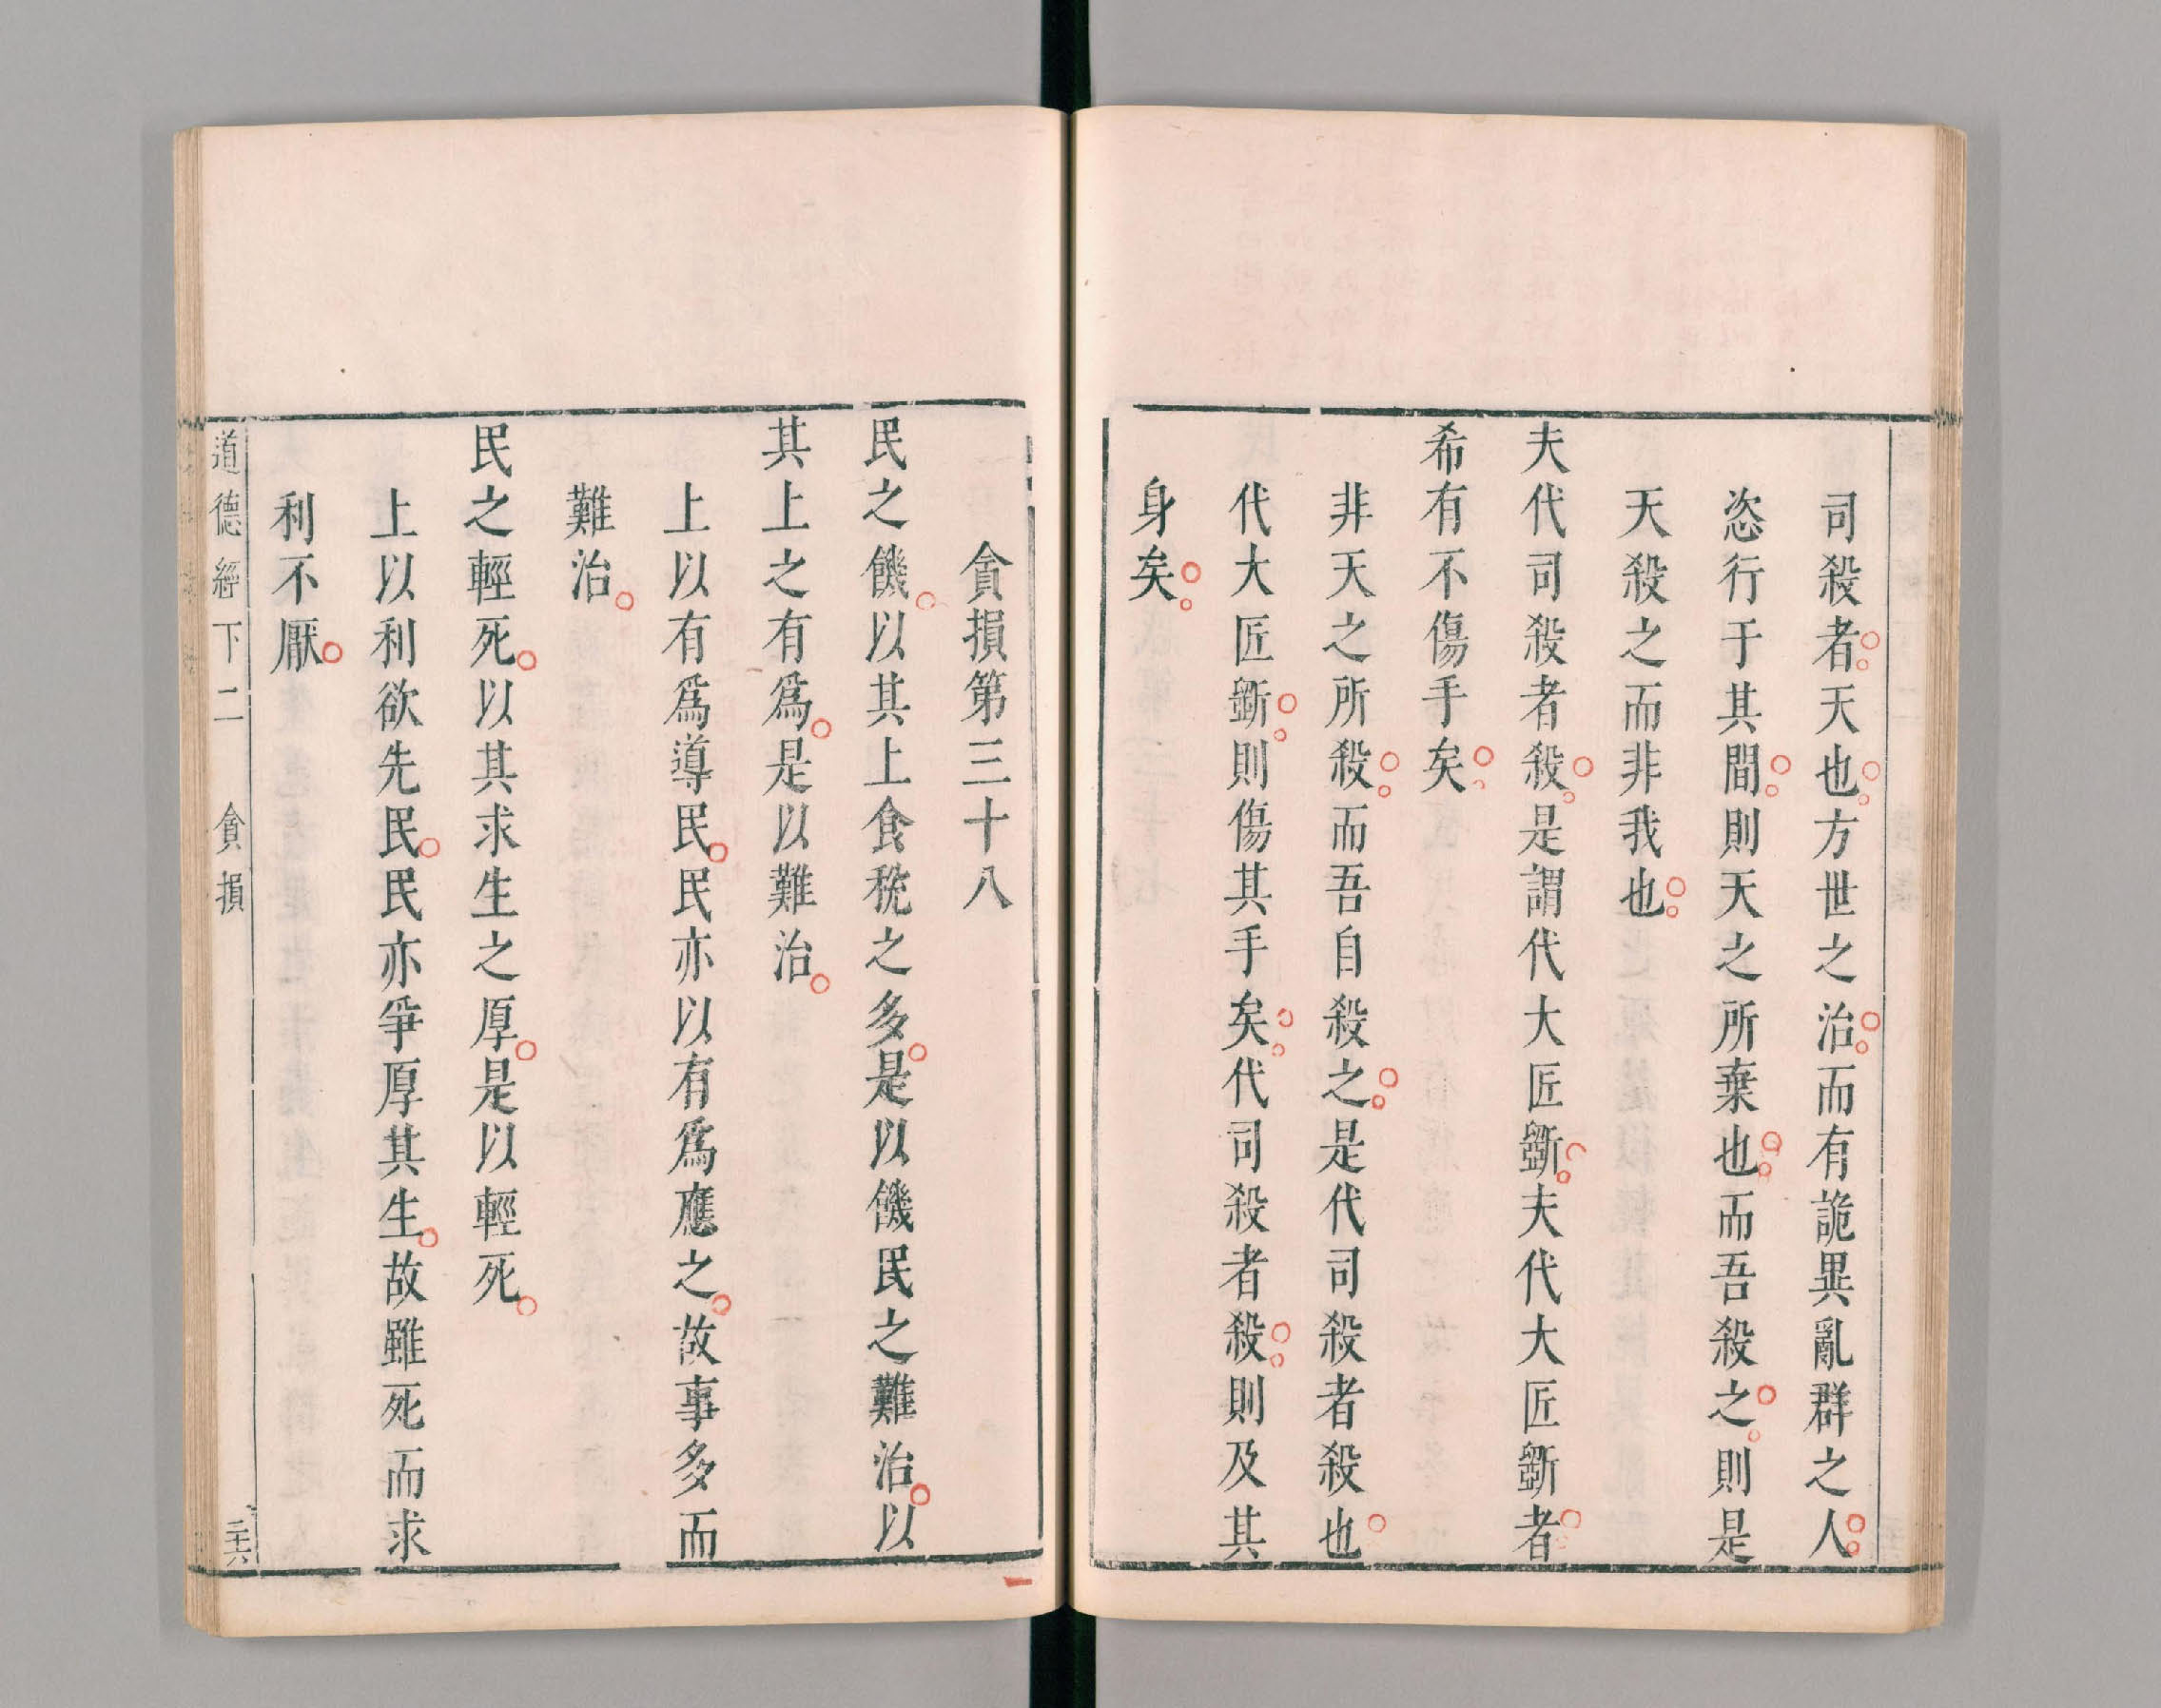 司殺者天也方世之治而有詭異亂群之人
恣行于其間則天之所棄也而吾殺之則是
天殺之而非我也
夫代司殺者殺是謂代大匠斲夫代大匠斲者
希有不傷手矣
非天之所殺而吾自殺之是代司殺者殺也
代大匠斲則傷其手矣代司殺者殺則及其
身矣
貪損第三十八
民之饑以其上食稅之多是以饑民之難治以
其上之有爲是以難治
上以有爲導民民亦以有爲應之故事多而
難治
民之輕死以其求生之厚是以輕死
上以利欲先民民亦爭厚其生故雖死而求
利不厭
道德經下二 貪損 三十六